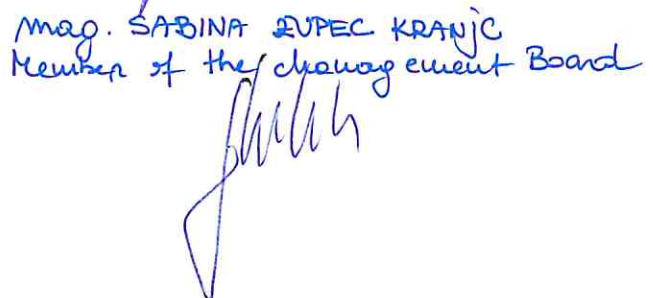 mag. SABINA ŽUPEC KRANJC
Member of the Management Board